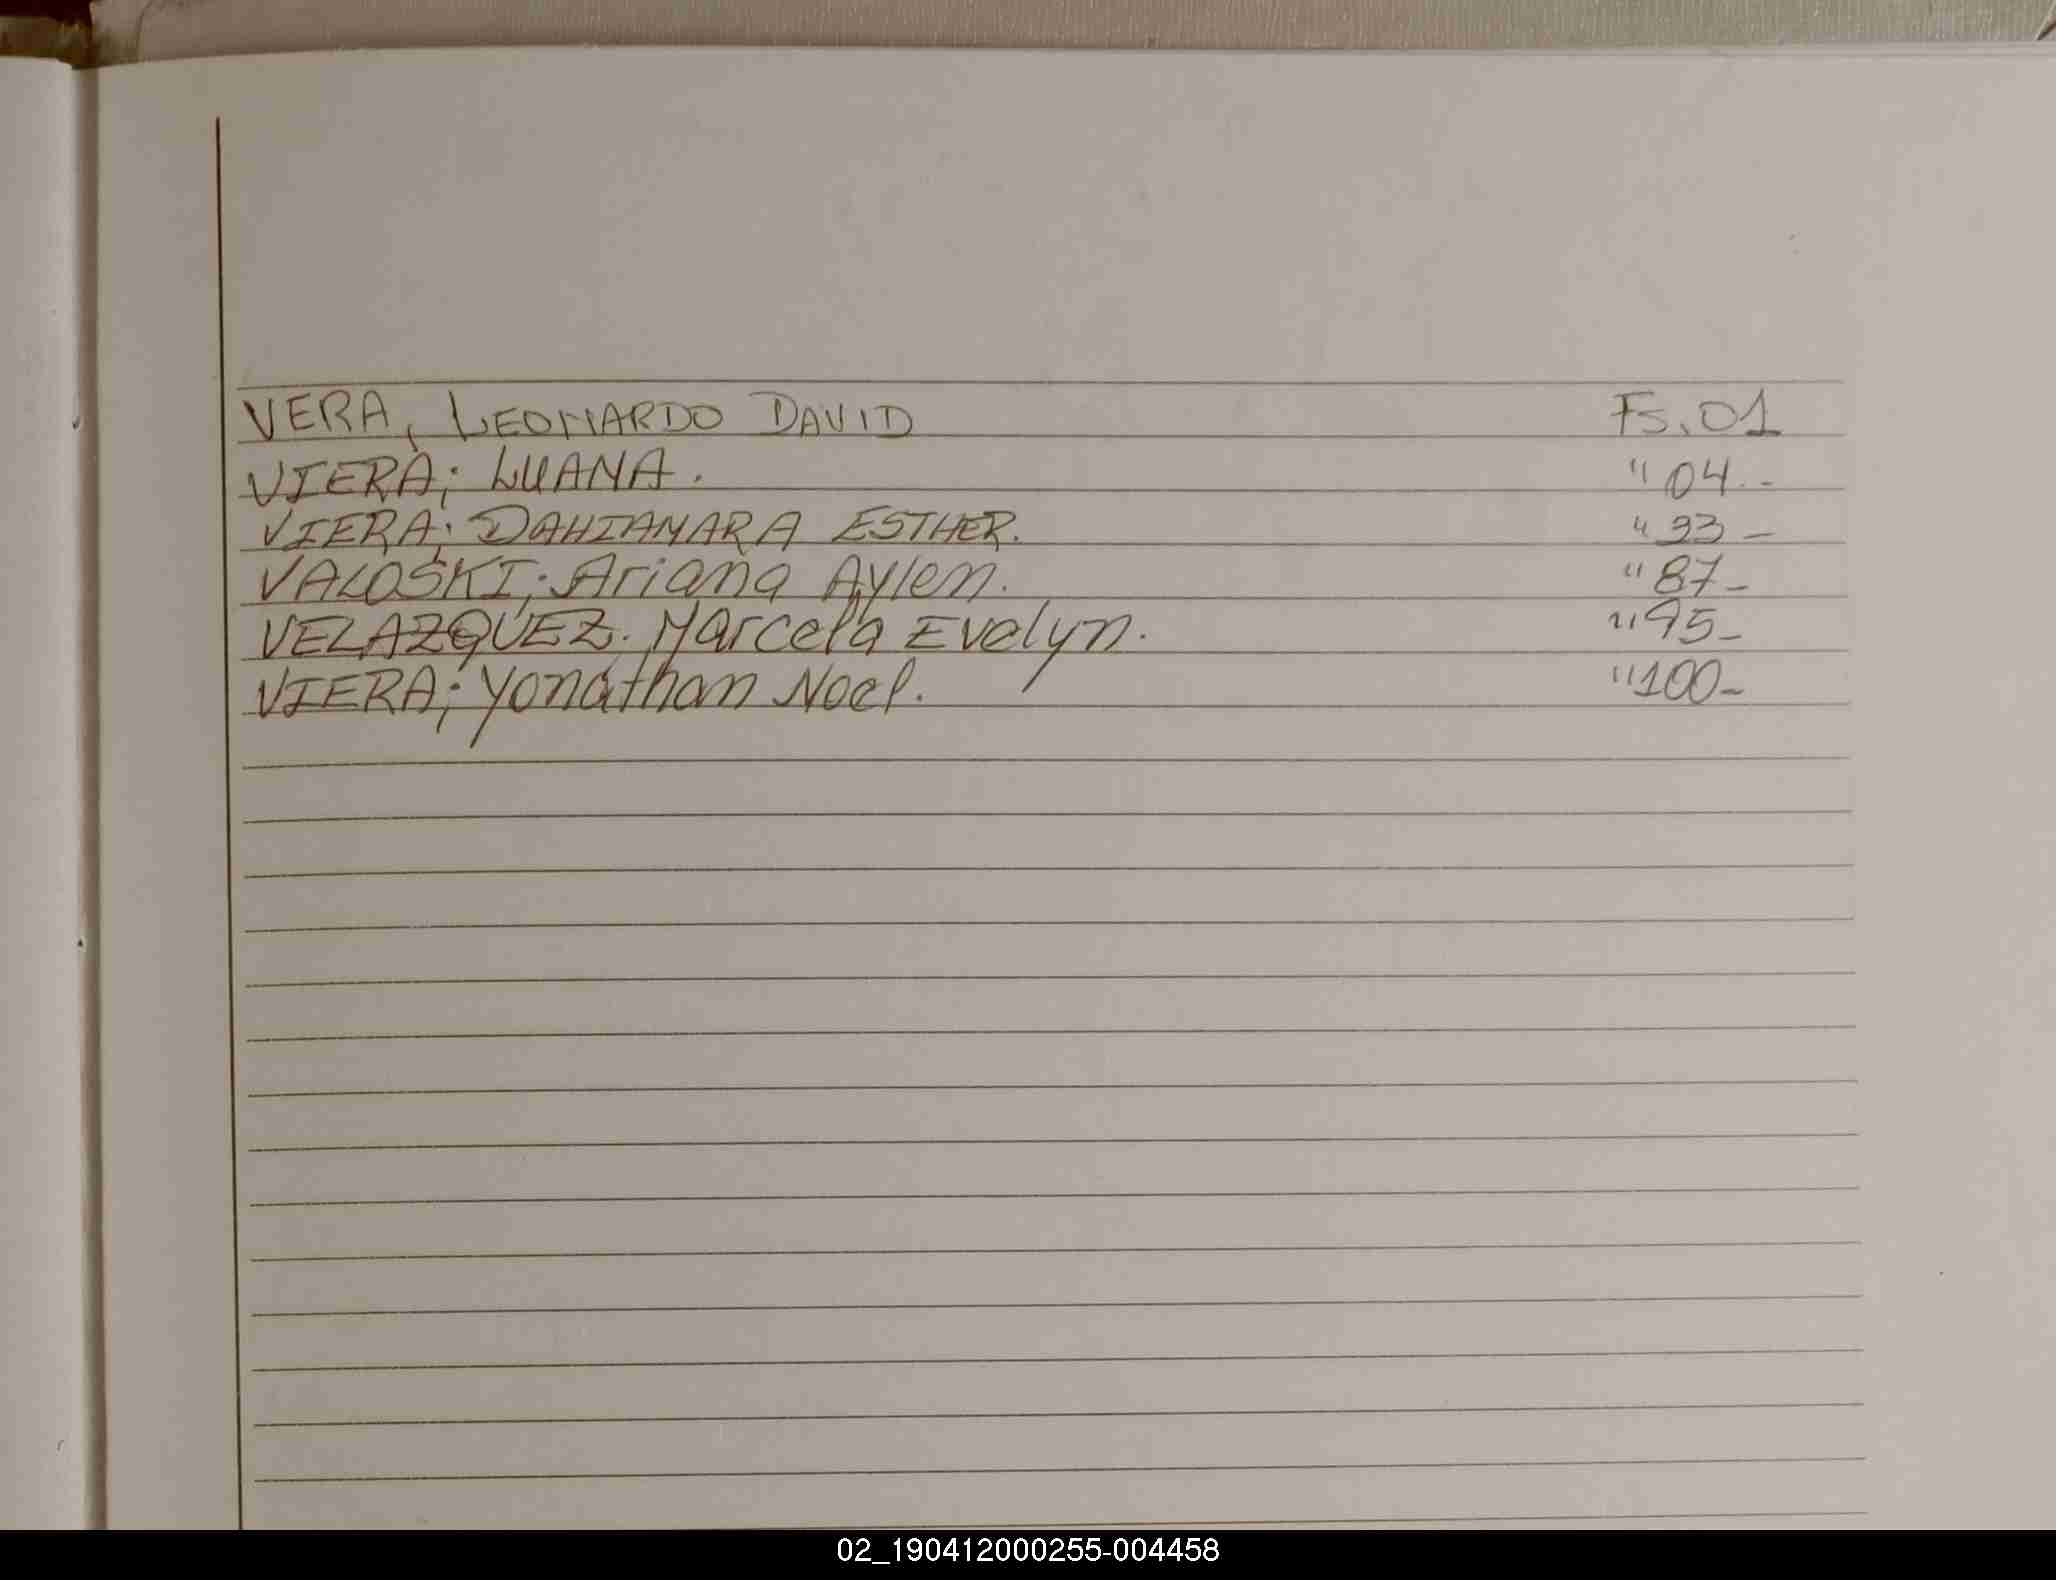 VERA, LEONARDO DAVID Fs. 01
VIERA; LUANA. " 04.-
VIERA; DAHIANARA ESTHER. " 33 -
VALOSKI; Ariana Aylen. " 87-
VELAZQUEZ. Marcela Evelyn. " 95-
VIERA; Yonathan Noel. " 100-
02_190412000255-004458